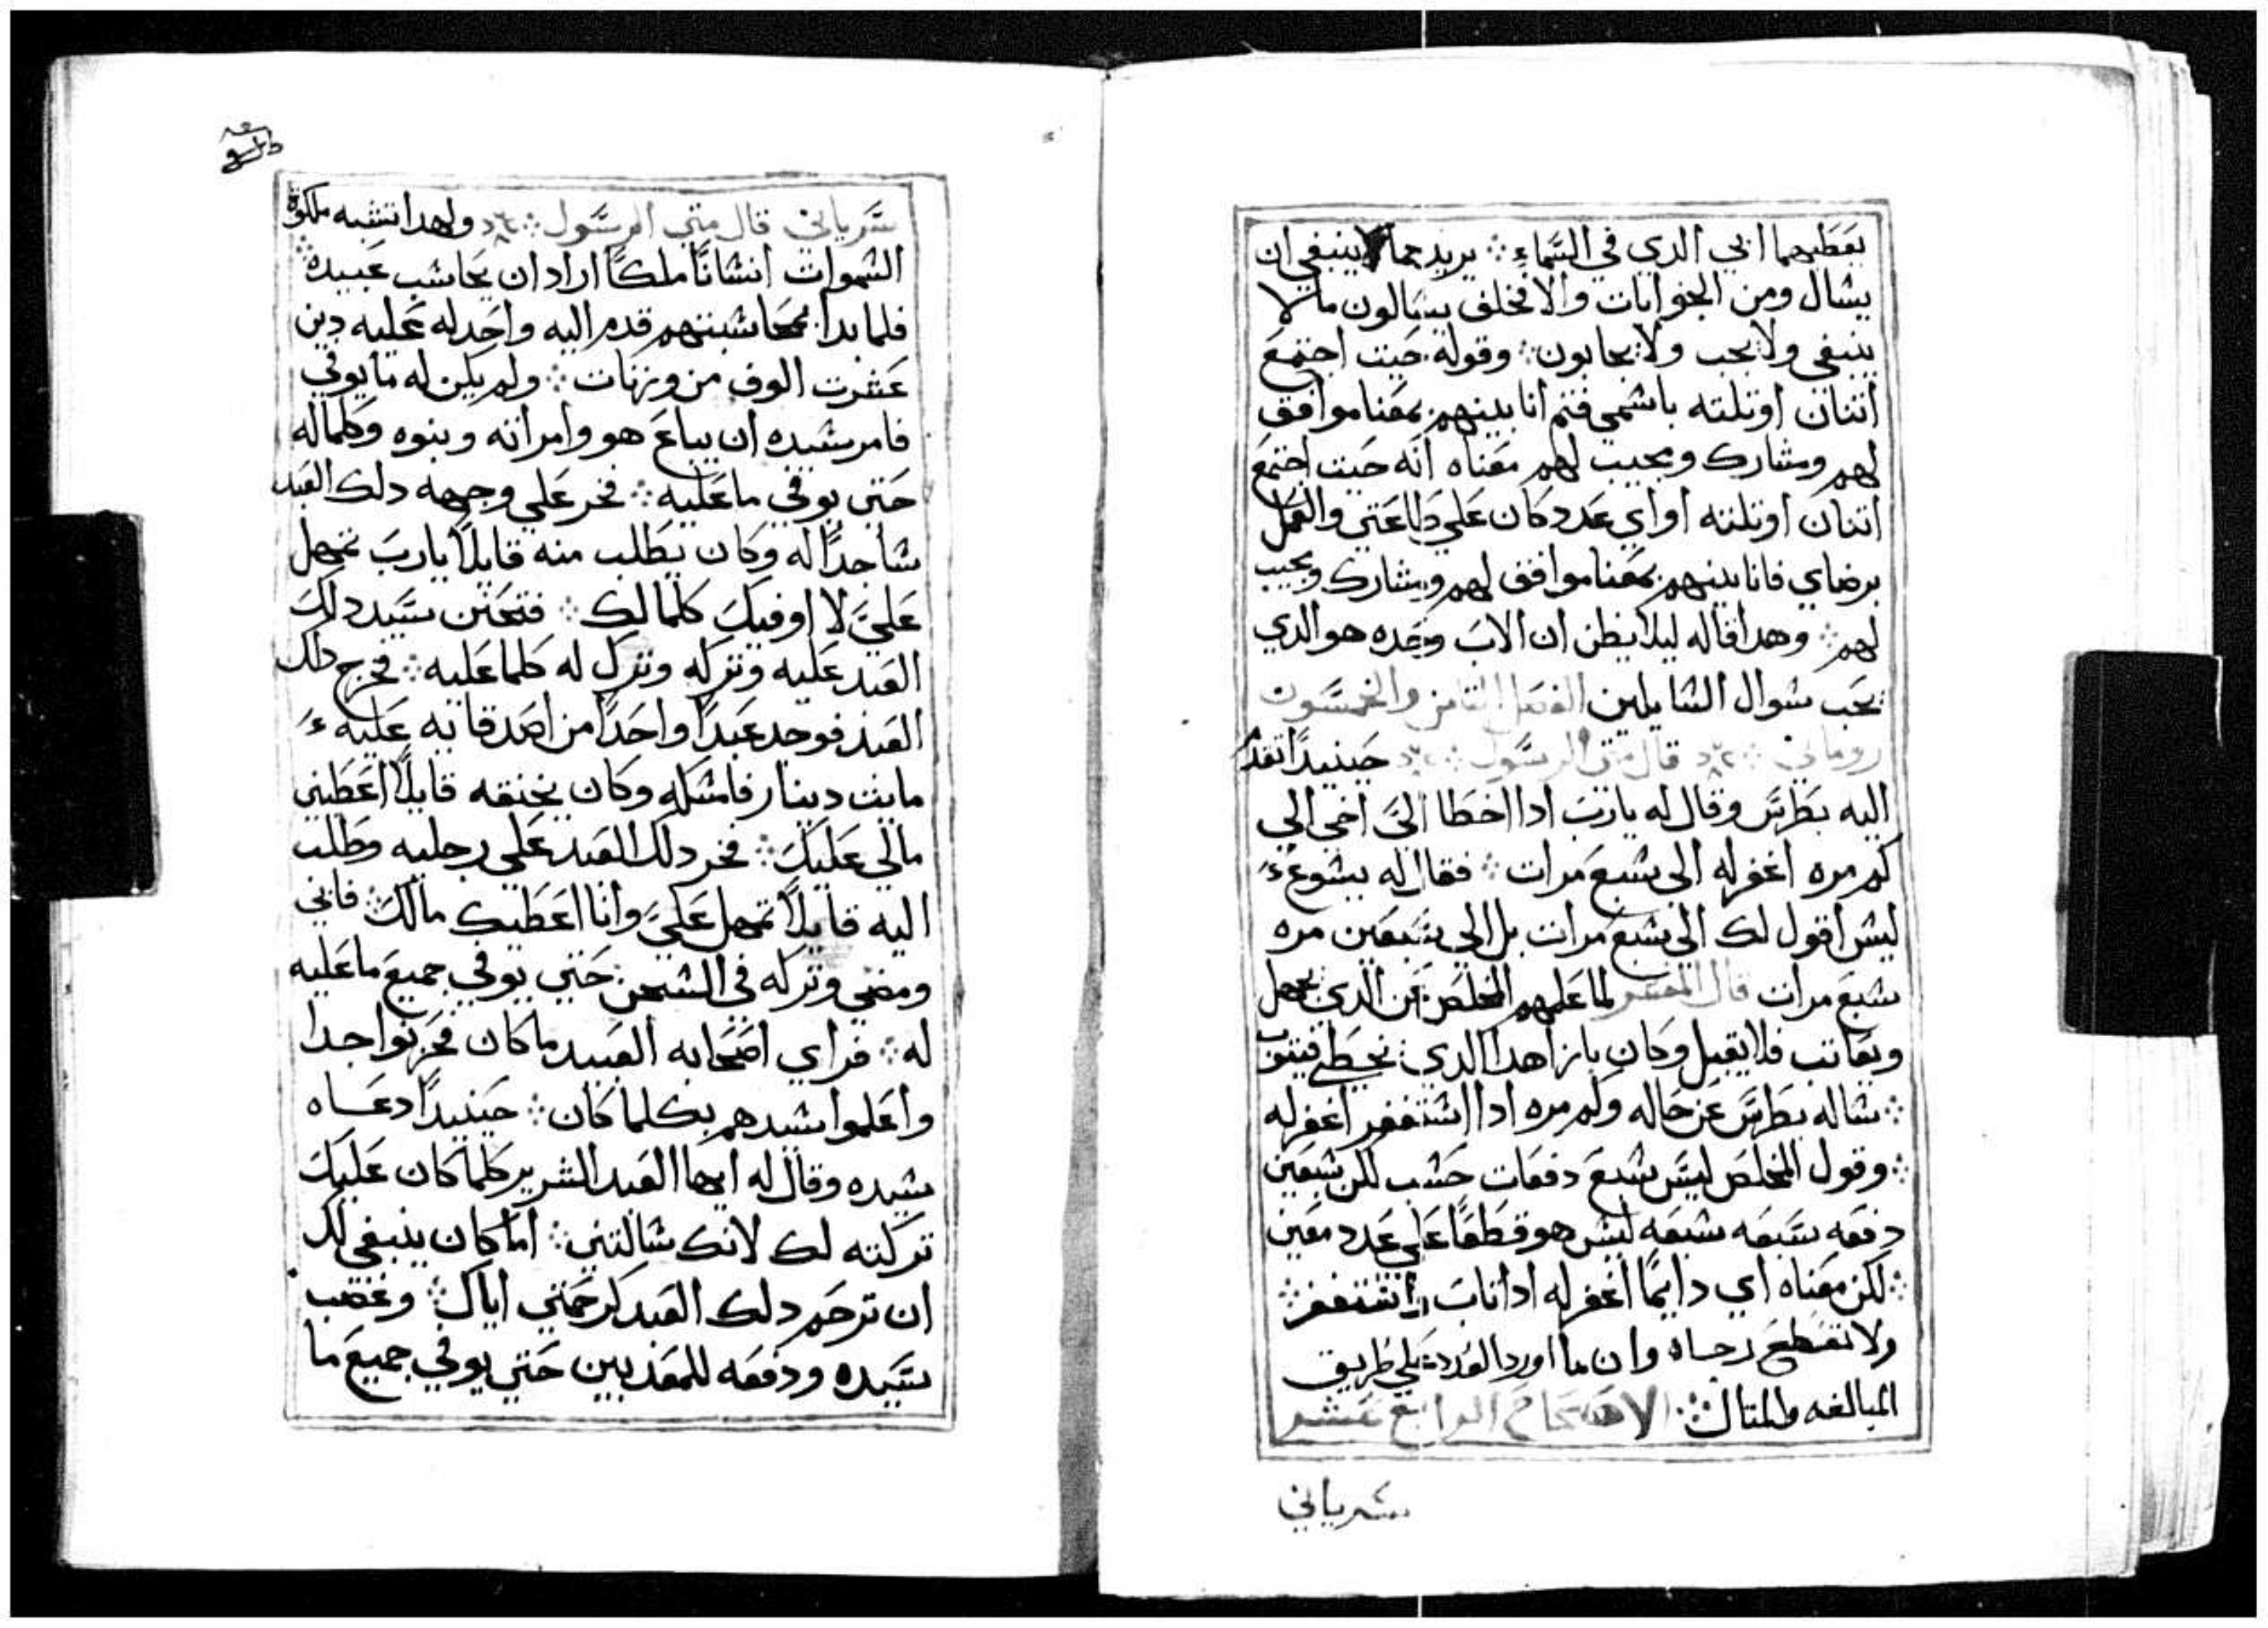 يعطيهما ابي الدي في السَّماءِ ؞ يريد مما لا ينبغي ان
يشال ومن الجوابات والا فخلف يسَالون ما لا
ينبغي ولا يحب ولا يجابون ؞ وقوله حيت اجتمعَ
اتنان اوتلته باشمي فتم انا بينهم بمعَنا موافق
لهم ومشارك ومجيب لهم معَناه انه حيت اجتمعَ
اتنان اوتلته او اي عَدد كان عَلي طاعَتي والعَمل
برضاي فانا بينهم بمعَنا موافق لهم ومشارك ومجيب
لهم ؞ وهدا قاله ليلا يظن ان الابَ وحَده هو الدي
يجَب شوال الشايلين الفصَل التامن والخمسَون
روماني ؞ قال متي الرسَول ؞ حَينيدًا تقدم
اليه بطرسَ وقال له ياربَ ادا اخطا اليَ اخي الي
كم مره اغفر له الي شبعَ مرات ؞ فقال له يشوعَ
ليسَ اقول لك الي شبعَ مرات بل الي سَبعَين مره
شبعَ مرات قال المفسر لما عَلمهم المخلصَ عَن الدي يجهل
ويعَاتب فلا يقبل وكان بازا هدا الدي يخطي فيتوب
؞ شاله بطرسَ عَن حَاله وكم مره ادا اشتغفر اغفر له
؞ وقول المخلصَ ليسَ شبعَ دفعَات حَشب لكن شبعَين
دفعَه سَبعَه شبعَه ليسَ هو قطعًا عَلي عَدد معَين
؞ لكن معَناه اي دايمًا اغفر له ادا تابَ واشتغفر ؞
ولا تقطعَ رجاه وان ما اورد العَدد عَلي طريق
المبالغه والمتال ؞ الاصَحَاحَ الرابعَ عَشر
سَرياني
سَرياني قال متي الرسَول ؞ ولهدا تشبه ملكوة
الشموات انشانًا ملكًا اراد ان يحَاشب عَبيده ؞
فلما بدا بمحَاشبتهم قدم اليه واحَد له عَليه دين
عَشرت الوف من وزنات ؞ ولم يكن له ما يوفي
فامر شيده ان يباعَ هو وامراته وبنوه وكلما له
حَتي يوفي ما عَليه ؞ فخر عَلي وجهه دلك العَبد
شاجدًا له وكان يطلب منه قايلًا ياربَ تمهل
عَليَ لا اوفيكَ كلما لك ؞ فتحَنن سَيد دلكَ
العَبد عَليه وتركه وترك له كلما عَليه ؞ فخرج دلك
العَبد فوجد عَبدًا واحَدًا من اصَدقايه عَليه
مايت دينار فامشكه وكان يخنقه قايلًا اعَطيني
مالي عَليكَ ؞ فخر دلك العَبد عَلي رجليه وطلب
اليه قايلًا تمهل عَليَ وانا اعَطيك مالكَ ؞ فابي
ومضي وتركه في الشجن حَتي يوفي جميعَ ما عَليه
له ؞ فراي اصَحَابه العَبيد ما كان فحَزنوا جدا
واعَلموا شيدهم بكلما كان ؞ حَينيدًا دعَاه
شيده وقال له ايها العَبد الشرير كلما كان عَليكَ
تركته لك لانك شالتني ؞ اما كان ينبغي لك
ان ترحَم دلك العَبد كرحَمتي اياك ؞ وغضب
سَيده ودفعَه للمعَذبين حَتي يوفي جميعَ ما